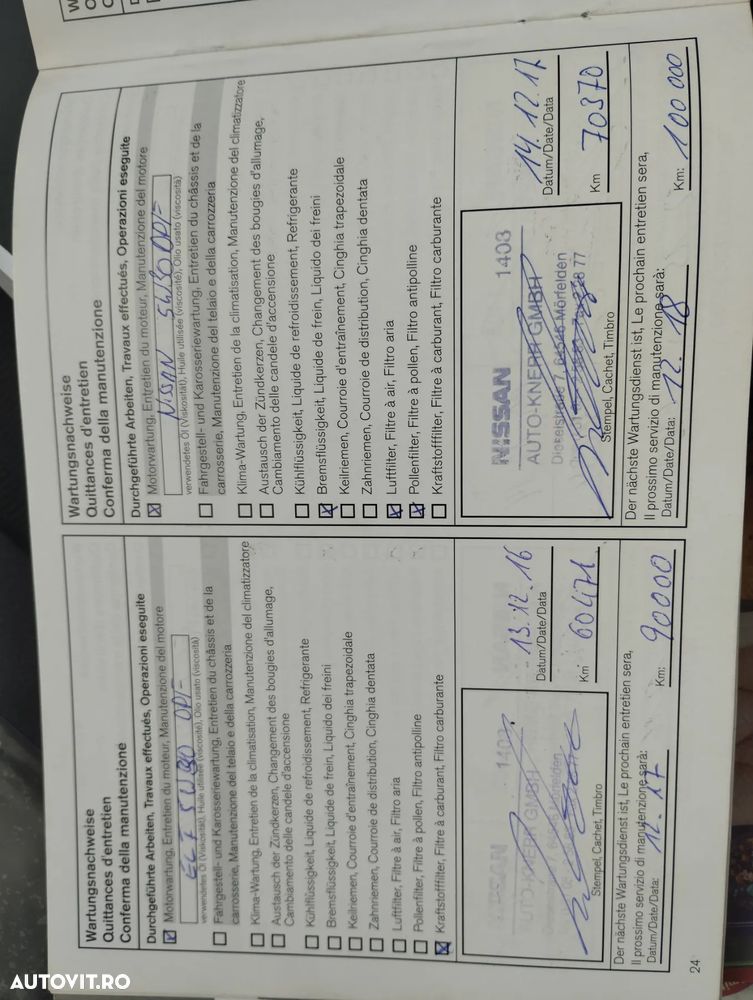 Wartungsnachweise
Quittances d'entretien
Conferma della manutenzione
Durchgeführte Arbeiten, Travaux effectués, Operazioni eseguite
Motorwartung, Entretien du moteur, Manutenzione del motore
5W30 DPF
verwendetes Öl (Viskosität), Huile utilisée (viscosité), Olio usato (viscosità)
Fahrgestell- und Karosseriewartung, Entretien du châssis et de la
carrosserie, Manutenzione del telaio e della carrozzeria
Klima-Wartung, Entretien de la climatisation, Manutenzione del climatizzatore
Austausch der Zündkerzen, Changement des bougies d'allumage,
Cambiamento delle candele d'accensione
Kühlflüssigkeit, Liquide de refroidissement, Refrigerante
Bremsflüssigkeit, Liquide de frein, Liquido dei freini
Keilriemen, Courroie d'entraînement, Cinghia trapezoidale
Zahnriemen, Courroie de distribution, Cinghia dentata
Luftfilter, Filtre à air, Filtro aria
Pollenfilter, Filtre à pollen, Filtro antipolline
Kraftstofffilter, Filtre à carburant, Filtro carburante
1403
AUTO-KNERR GMBH
Mörfelden
Stempel, Cachet, Timbro
13.12.16
Datum/Date/Data
Km 60471
Der nächste Wartungsdienst ist, Le prochain entretien sera,
Il prossimo servizio di manutenzione sarà:
Datum/Date/Data: 12.17
Km: 90000
24
Wartungsnachweise
Quittances d'entretien
Conferma della manutenzione
Durchgeführte Arbeiten, Travaux effectués, Operazioni eseguite
Motorwartung, Entretien du moteur, Manutenzione del motore
NISSAN 5W30 DPF
verwendetes Öl (Viskosität), Huile utilisée (viscosité), Olio usato (viscosità)
Fahrgestell- und Karosseriewartung, Entretien du châssis et de la
carrosserie, Manutenzione del telaio e della carrozzeria
Klima-Wartung, Entretien de la climatisation, Manutenzione del climatizzatore
Austausch der Zündkerzen, Changement des bougies d'allumage,
Cambiamento delle candele d'accensione
Kühlflüssigkeit, Liquide de refroidissement, Refrigerante
Bremsflüssigkeit, Liquide de frein, Liquido dei freini
Keilriemen, Courroie d'entraînement, Cinghia trapezoidale
Zahnriemen, Courroie de distribution, Cinghia dentata
Luftfilter, Filtre à air, Filtro aria
Pollenfilter, Filtre à pollen, Filtro antipolline
Kraftstofffilter, Filtre à carburant, Filtro carburante
NISSAN 1403
AUTO-KNERR GMBH
Mörfelden
Stempel, Cachet, Timbro
14.12.17
Datum/Date/Data
Km 70370
Der nächste Wartungsdienst ist, Le prochain entretien sera,
Il prossimo servizio di manutenzione sarà:
Datum/Date/Data: 12.18
Km: 100 000
AUTOVIT.RO